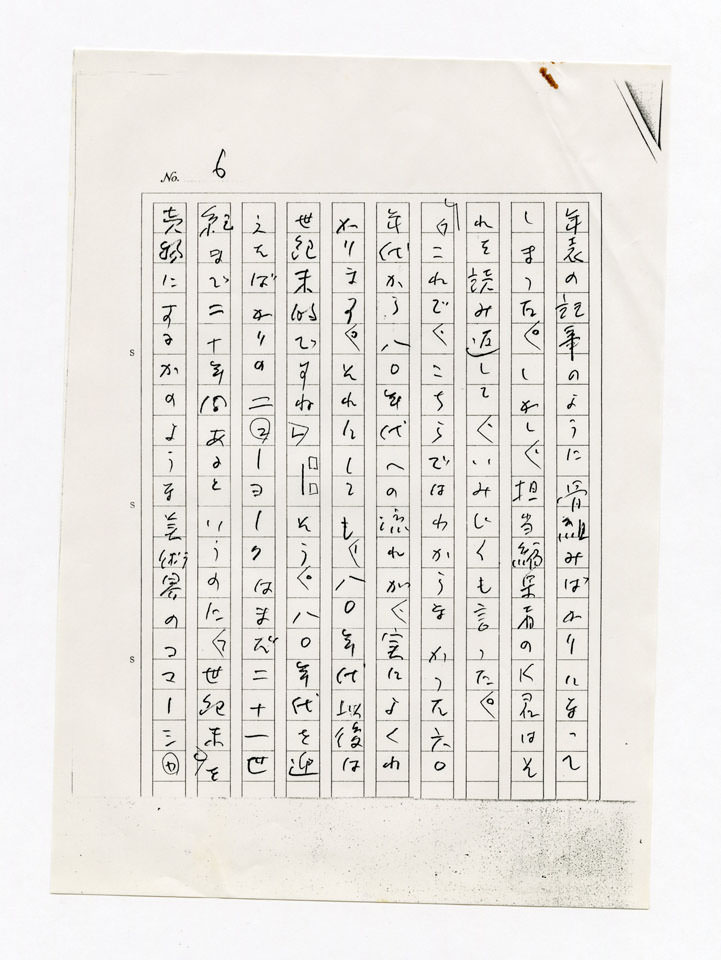 No. 6
年表の記事のように骨組みばかりになって
しまった。しかし、担当編集者のK君はそ
れを読み返して、いみじくも言った。
「これで、こちらではわからなかった六〇
年代から八〇年代への流れが、実によくわ
かります。それにしても、八〇年代以後は
世紀末的ですね」 そう。八〇年代を迎
えたばかりのニューヨークはまだ二十一世
紀まで二十年間あるというのに、「世紀末」を
売物にするかのような美術界のコマーシャ
S
S
S